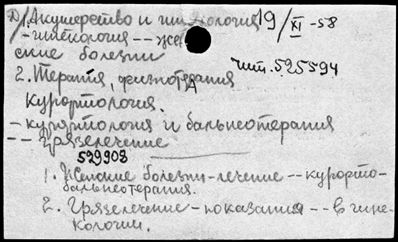 Д/Акушерство и гинекология 19/XI-58
-гинекология -- жен
ские болезни
чит. 525594
2. Терапия, физиотерапия
Курортология.
- курортология и бальнеотерапия
-- грязелечение
529908
1. Женские болезни-лечение -- курорто-
бальнеотерапия.
2. Грязелечение - показания -- в гине-
кологии.